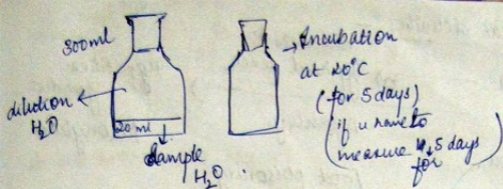 300ml
dilution
H₂O
20 ml
Sample
H₂O
→ Incubation
at 20°C
(for 5 days)
(if u have to
measure it, 5 days)
for